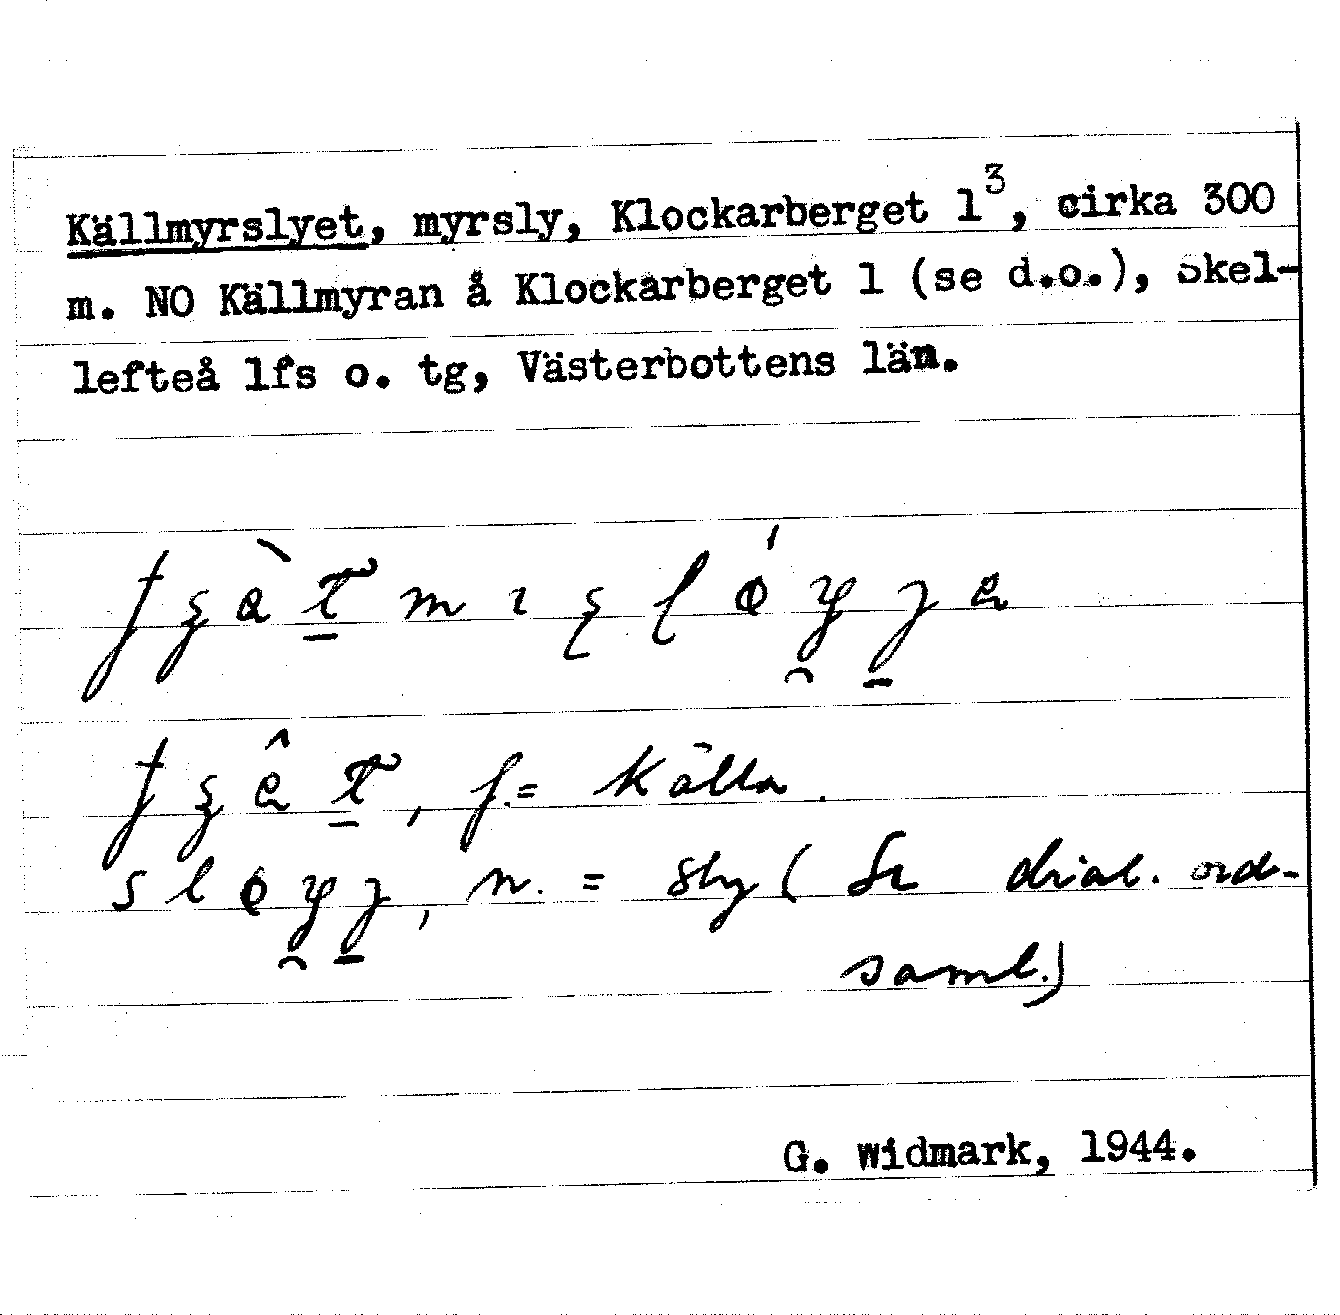 Källmyrslyet, myrsly, Klockarberget 1³, cirka 300
m. NO Källmyran å Klockarberget 1 (se d.o.), Skel-
lefteå lfs o. tg, Västerbottens län.
f.= källa.
n. = sly (Se dial. ord-
saml.)
G. Widmark, 1944.